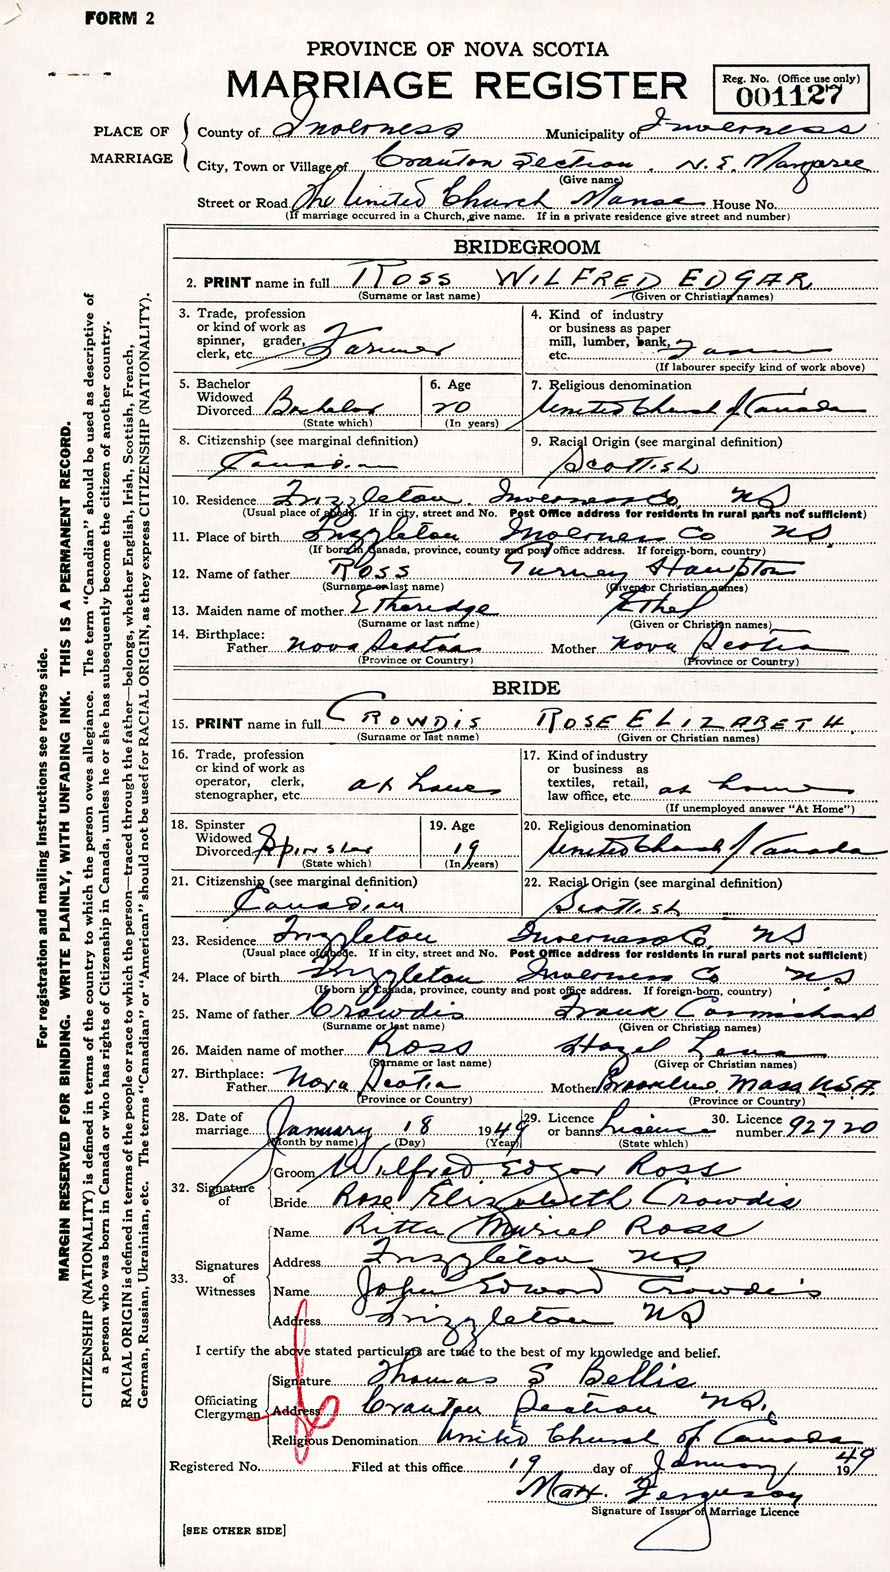 FORM 2
PROVINCE OF NOVA SCOTIA
MARRIAGE REGISTER
Reg. No. (Office use only)
001127
PLACE OF MARRIAGE
County of Inverness Municipality of Inverness
City, Town or Village of Cranton Section. N.E. Margaree
(Give name)
Street or Road The United Church Manse House No.
(If marriage occurred in a Church, give name. If in a private residence give street and number)
BRIDEGROOM
2. PRINT name in full ROSS WILFRED EDGAR
(Surname or last name) (Given or Christian names)
3. Trade, profession or kind of work as spinner, grader, clerk, etc. Farmer
4. Kind of industry or business as paper mill, lumber, bank, etc. Farm
(If labourer specify kind of work above)
5. Bachelor Widowed Divorced Bachelor
(State which)
6. Age 20
(In years)
7. Religious denomination
United Church of Canada
8. Citizenship (see marginal definition)
Canadian
9. Racial Origin (see marginal definition)
Scottish
10. Residence Frizzleton. Inverness Co. NS
(Usual place of abode. If in city, street and No. Post Office address for residents in rural parts not sufficient)
11. Place of birth Frizzleton Inverness Co NS
(If born in Canada, province, county and post office address. If foreign-born, country)
12. Name of father Ross Gurney Hampton
(Surname or last name) (Given or Christian names)
13. Maiden name of mother Etheridge Ethel
(Surname or last name) (Given or Christian names)
14. Birthplace:
Father Nova Scotia Mother Nova Scotia
(Province or Country) (Province or Country)
BRIDE
15. PRINT name in full CROWDIS ROSE ELIZABETH
(Surname or last name) (Given or Christian names)
16. Trade, profession or kind of work as operator, clerk, stenographer, etc. at home
17. Kind of industry or business as textiles, retail, law office, etc. at home
(If unemployed answer "At Home")
18. Spinster Widowed Divorced Spinster
(State which)
19. Age 19
(In years)
20. Religious denomination
United Church of Canada
21. Citizenship (see marginal definition)
Canadian
22. Racial Origin (see marginal definition)
Scottish
23. Residence Frizzleton Inverness Co. NS
(Usual place of abode. If in city, street and No. Post Office address for residents in rural parts not sufficient)
24. Place of birth Frizzleton Inverness Co NS
(If born in Canada, province, county and post office address. If foreign-born, country)
25. Name of father Crowdis Frank Carmichael
(Surname or last name) (Given or Christian names)
26. Maiden name of mother Ross Hazel Lena
(Surname or last name) (Given or Christian names)
27. Birthplace:
Father Nova Scotia Mother Brookline. Mass U.S.A.
(Province or Country) (Province or Country)
28. Date of marriage January 18 1949
(Month by name) (Day) (Year)
29. Licence or banns Licence
(State which)
30. Licence number 92720
32. Signature of
Groom Wilfred Edgar Ross
Bride Rose Elizabeth Crowdis
33. Signatures of Witnesses
Name Ritta Muriel Ross
Address Frizzleton NS
Name John Edward Crowdis
Address Frizzleton NS
I certify the above stated particulars are true to the best of my knowledge and belief.
Officiating Clergyman
Signature Thomas S Bellis
Address Cranton Section NS.
Religious Denomination United Church of Canada
Registered No. Filed at this office 19 day of January 1949
Matt. Ferguson
Signature of Issuer of Marriage Licence
[SEE OTHER SIDE]
For registration and mailing instructions see reverse side.
MARGIN RESERVED FOR BINDING. WRITE PLAINLY, WITH UNFADING INK. THIS IS A PERMANENT RECORD.
CITIZENSHIP (NATIONALITY) is defined in terms of the country to which the person owes allegiance. The term "Canadian" should be used as descriptive of
a person who was born in Canada or who has rights of Citizenship in Canada, unless he or she has subsequently become the citizen of another country.
RACIAL ORIGIN is defined in terms of the people or race to which the person—traced through the father—belongs, whether English, Irish, Scottish, French,
German, Russian, Ukrainian, etc. The terms "Canadian" or "American" should not be used for RACIAL ORIGIN, as they express CITIZENSHIP (NATIONALITY).